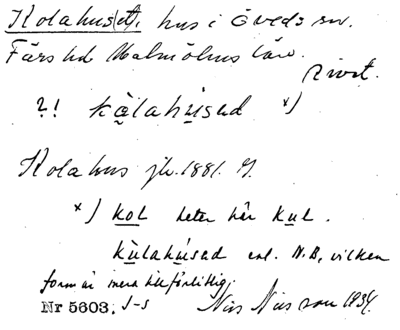 Kolahus(et), hus i Öveds sn.
Färs hd Malmöhus län.
rivet.
?! kålahúsad x)
Kolahus jb. 1881.
x) kol heter här kul.
kùlahúsad enl. N.B, vilken
form är mera tillförlitlig.
Nr 5603. J-s Nils Nilsson 1934.